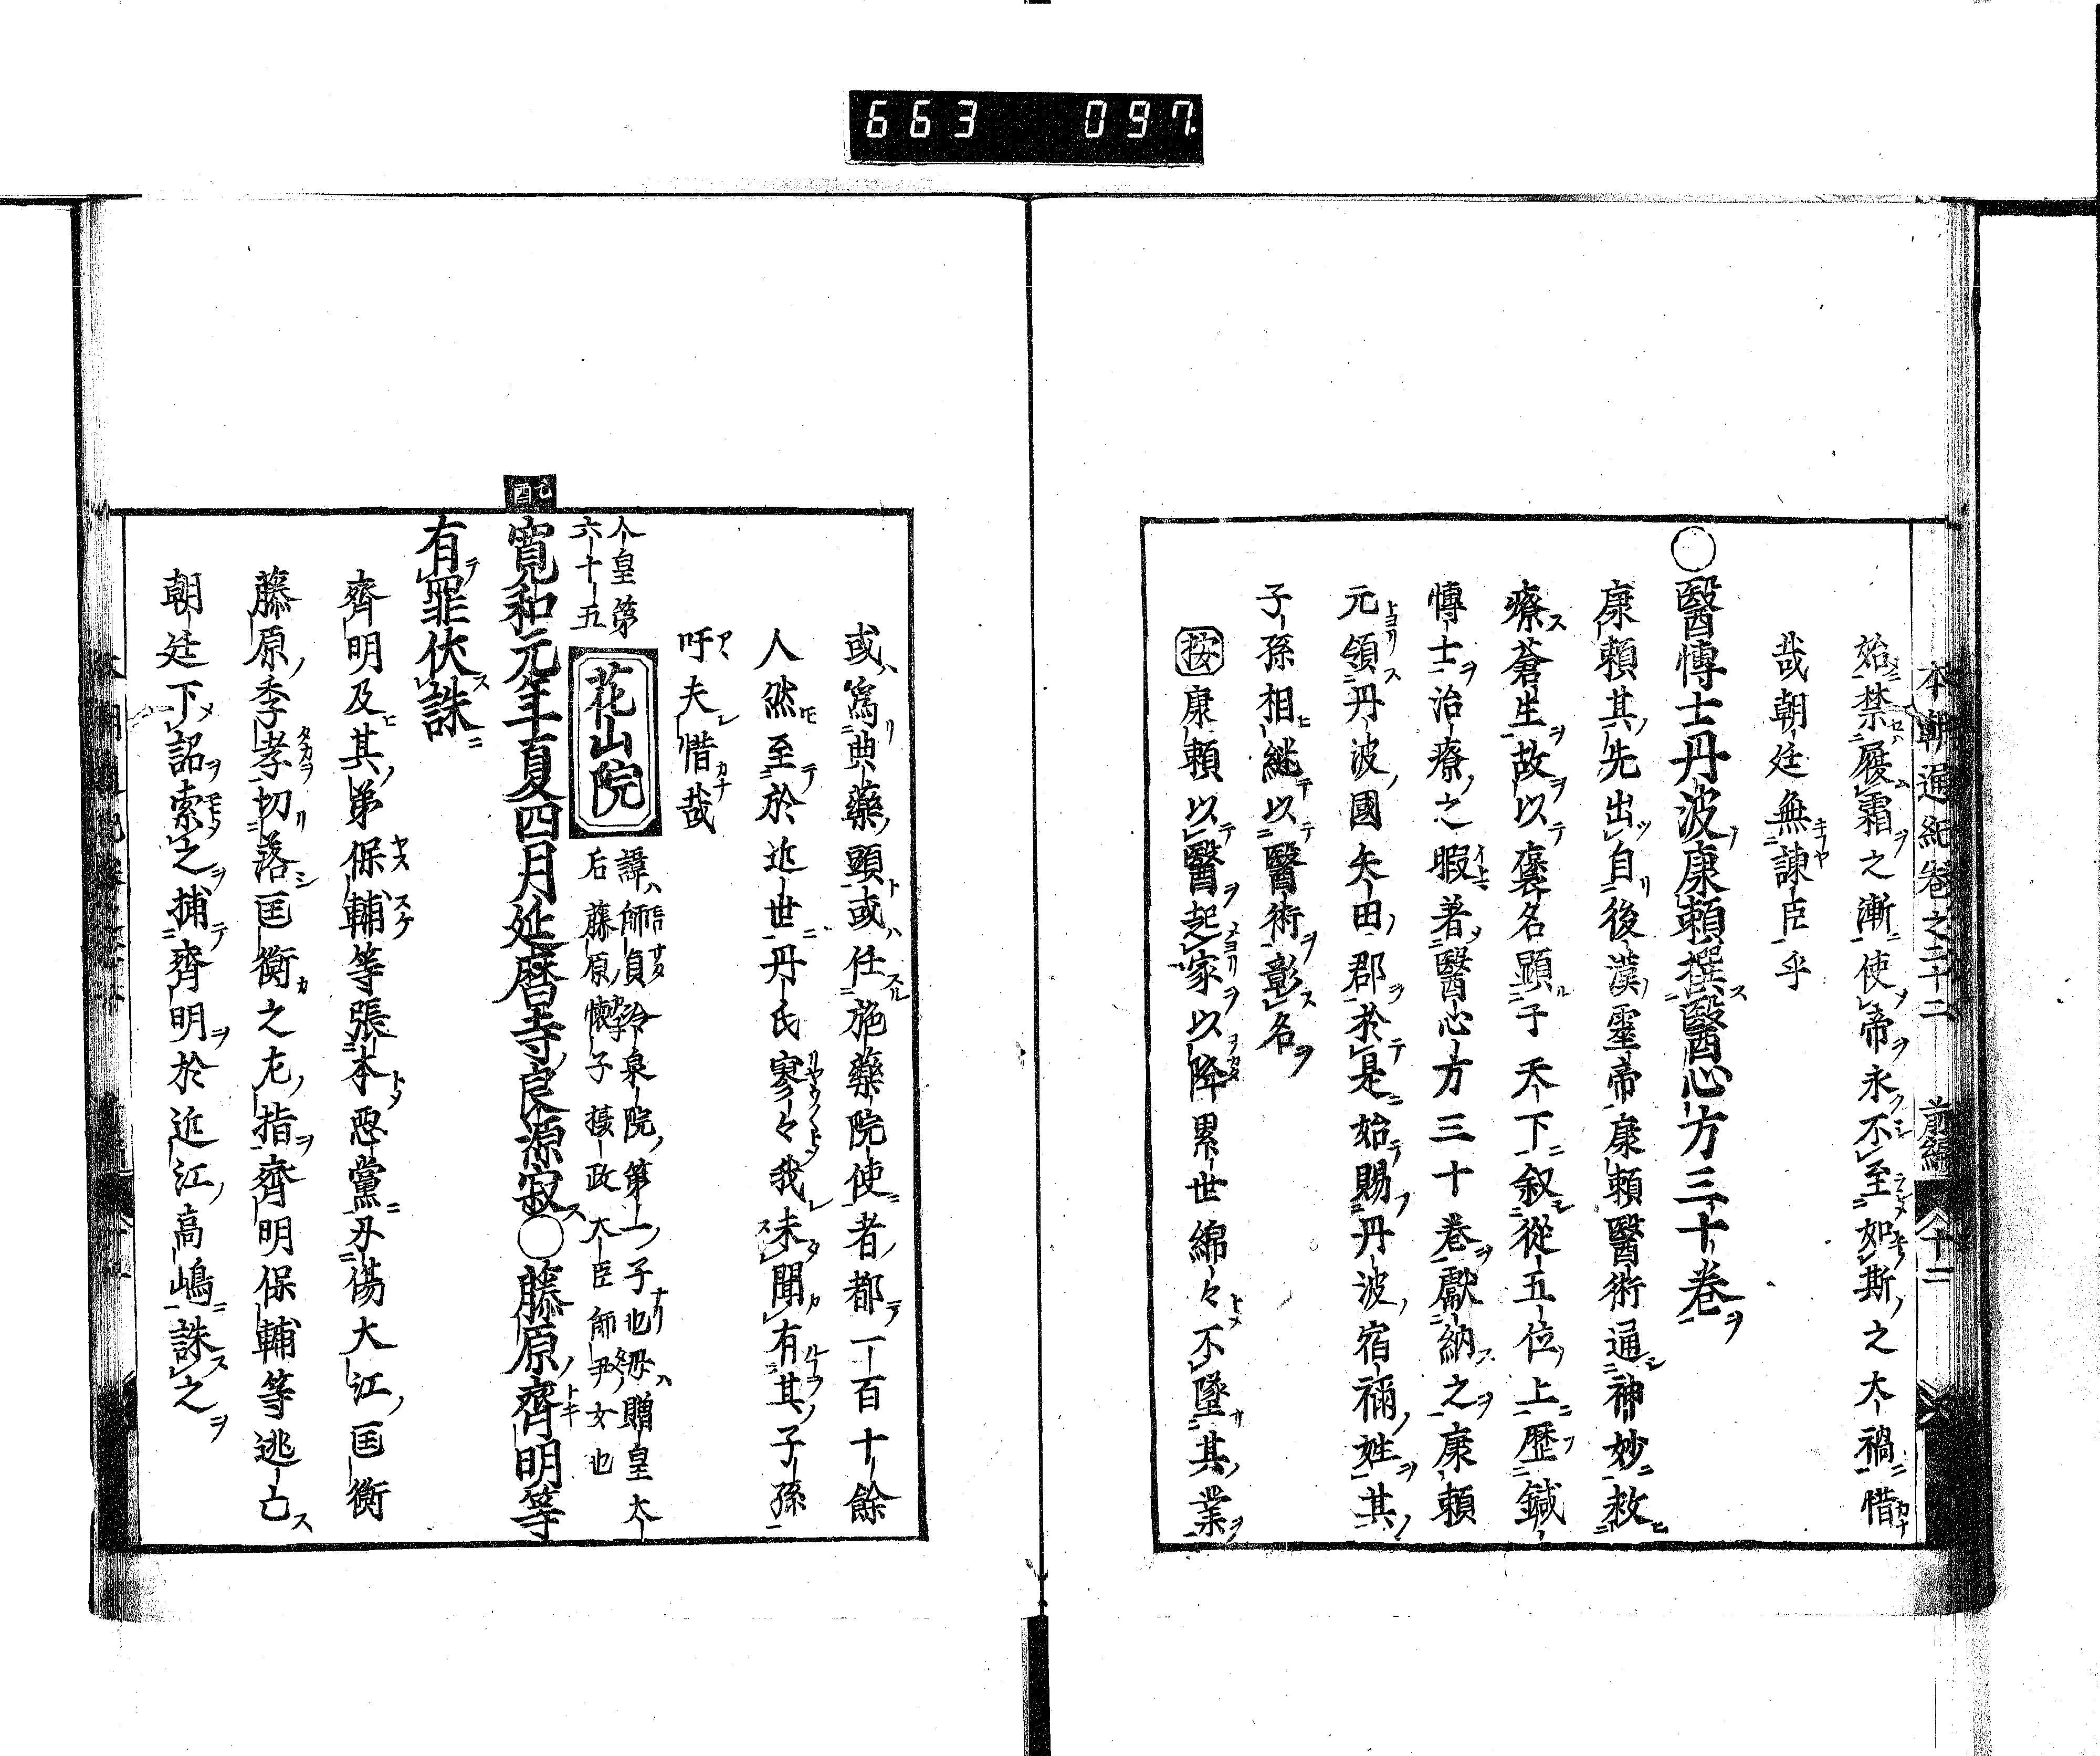 663 097
本朝通紀卷之二十二 前編 八 十二
始禁履霜之漸使帝永不至如斯之大禍惜
哉朝廷無諫臣乎
○醫博士丹波康賴撰醫心方三十卷
康賴其先出自後漢靈帝康賴醫術通神妙救
療蒼生故以褒名顯于天下叙從五位上歷鍼
博士治療之暇著醫心方三十卷獻納之康賴
元領丹波國矢田郡於是始賜丹波宿禰姓其
子孫相継以醫術彰名
按康賴以醫起家以降累世綿々不墜其業
或爲典藥頭或任施藥院使者都一百十餘
人然至於近世丹氏寥々我未聞有其子孫
吁夫惜哉
人皇第六十五 花山院 諱師貞冷泉院第一子也母贈皇太后藤原懷子攝政太臣師尹女也
乙酉
寬和元年夏四月延曆寺良源寂○藤原齊明等
有罪伏誅
齊明及其弟保輔等張本惡黨刃傷大江匡衡
藤原季孝切落匡衡之左指齊明保輔等逃亡
朝廷下詔索之捕齊明於近江高嶋誅之